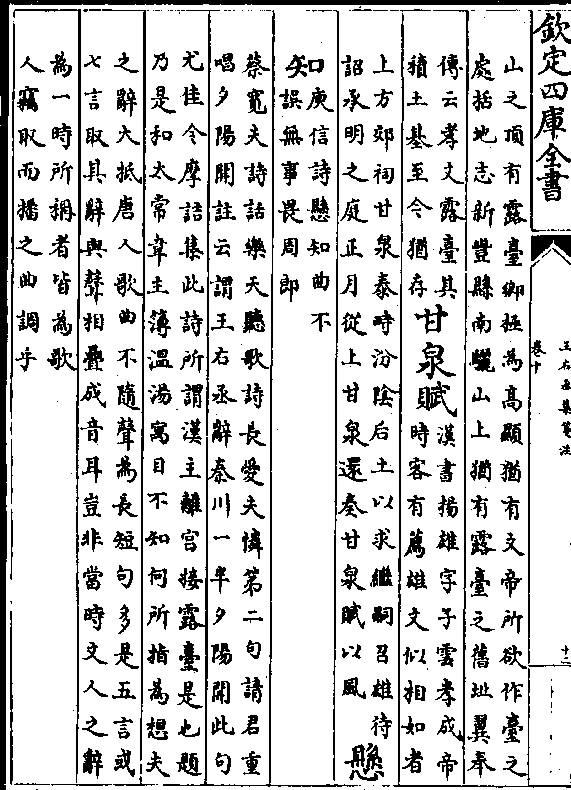 欽定四庫全書
王右丞集箋注
卷十
十二
山之頂有露臺鄉極為高顯猶有文帝所欲作臺之
處括地志新豐縣南驪山上猶有露臺之舊址翼奉
傳云孝文露臺其
積土基至今猶存
甘泉賦
漢書揚雄字子雲孝成帝
時客有薦雄文似相如者
上方郊祠甘泉泰時汾陰后土以求繼嗣召雄待
詔承明之庭正月從上甘泉還奏甘泉賦以風
懸
知
庾信詩懸知曲不
誤無事畏周郎
蔡寬夫詩話樂天聽歌詩長愛夫憐第二句請君重
唱夕陽開註云謂王右丞辭秦川一半夕陽開此句
尤佳今摩詰集此詩所謂漢主離宮接露臺是也題
乃是和太常韋主簿溫湯寓目不知何所指為想夫
之辭大抵唐人歌曲不隨聲為長短句多是五言或
七言取其辭與聲相疊成音耳豈非當時文人之辭
為一時所稱者皆為歌
人竊取而播之曲調乎